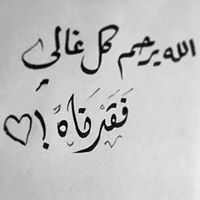 الله يرحم كل غالي
فَقَدنَاهُ !♡